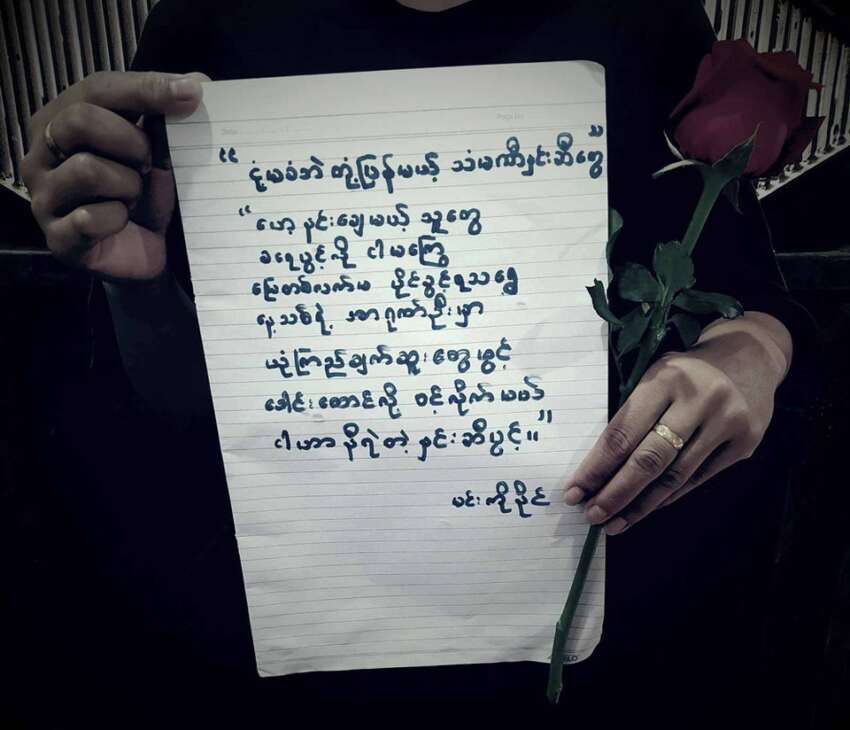 “ ငုံ့မခံဘဲ တုံ့ပြန်မယ့် သံမဏိနှင်းဆီတွေ ”
“ ဟေ့ နင်းချေမယ့် သူတွေ
ခရေပွင့်လို ငါမကြွေ
မြေတစ်လက်မ ပိုင်ခွင့်ရသရွေ့
နေ့သစ်ရဲ့ အာရုဏ်ဦးမှာ
ယုံကြည်ချက်ဆူးတွေဖွင့်
ခေါင်းထောင်လို့ ဝင့်လိုက်မယ်
ငါဟာ နီရဲတဲ့ နှင်းဆီပွင့်။ ”
မင်းကိုနိုင်